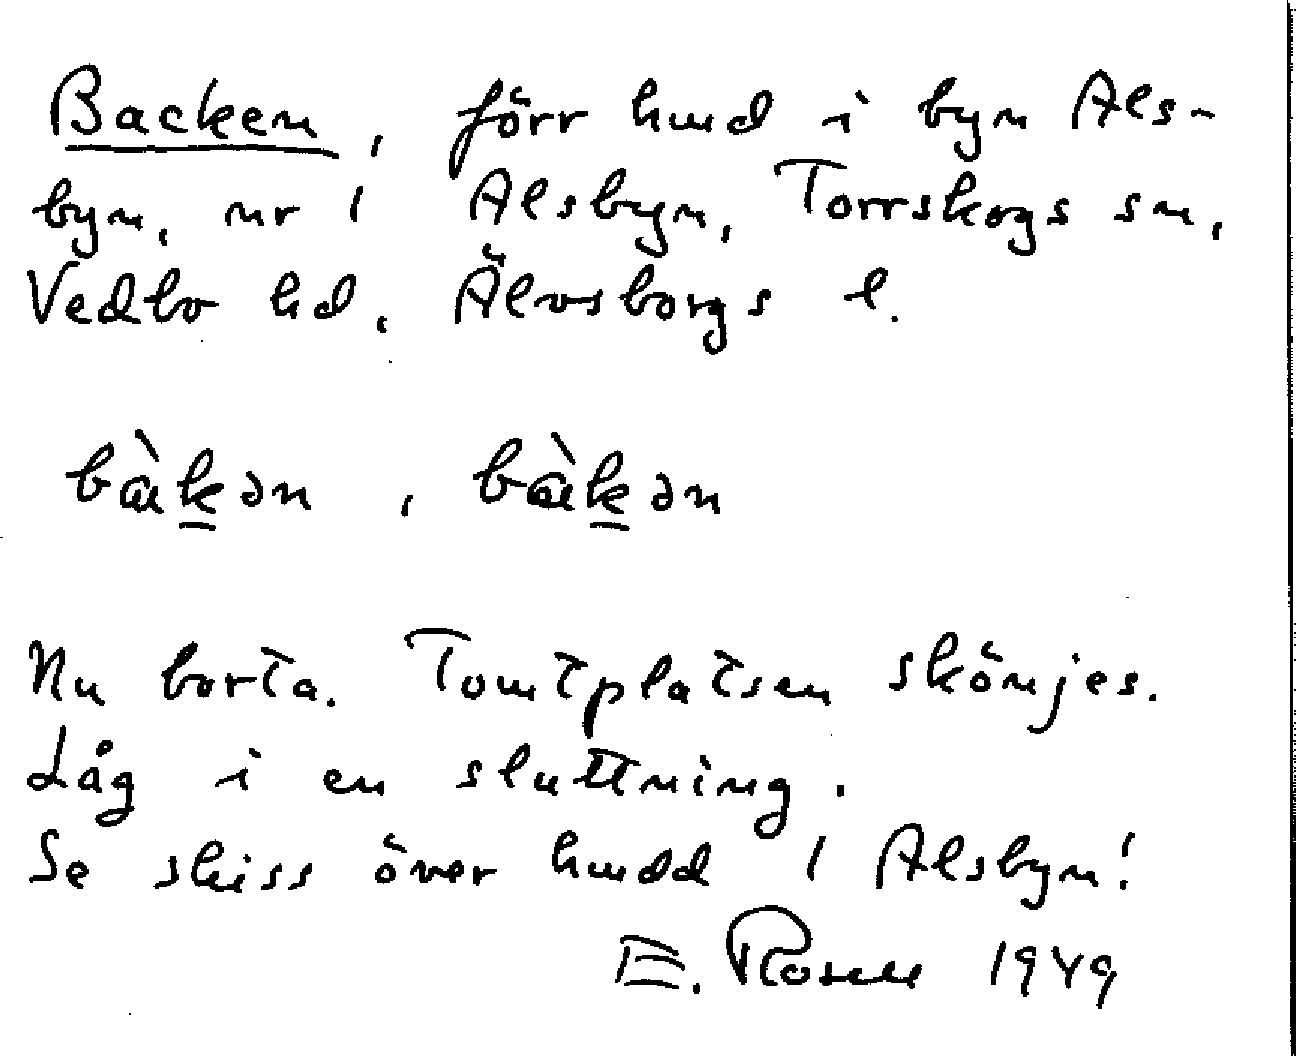 Backen, förr hmd i byn Als-
byn, nr 1 Alsbyn, Torrskogs sn,
Vedbo hd, Älvsborgs l.
bàk̲ən, bàk̲ən
Nu borta. Tomtplatsen skönjes.
Låg i en sluttning.
Se skiss över hmdd 1 Alsbyn!
E. Rosell 1949